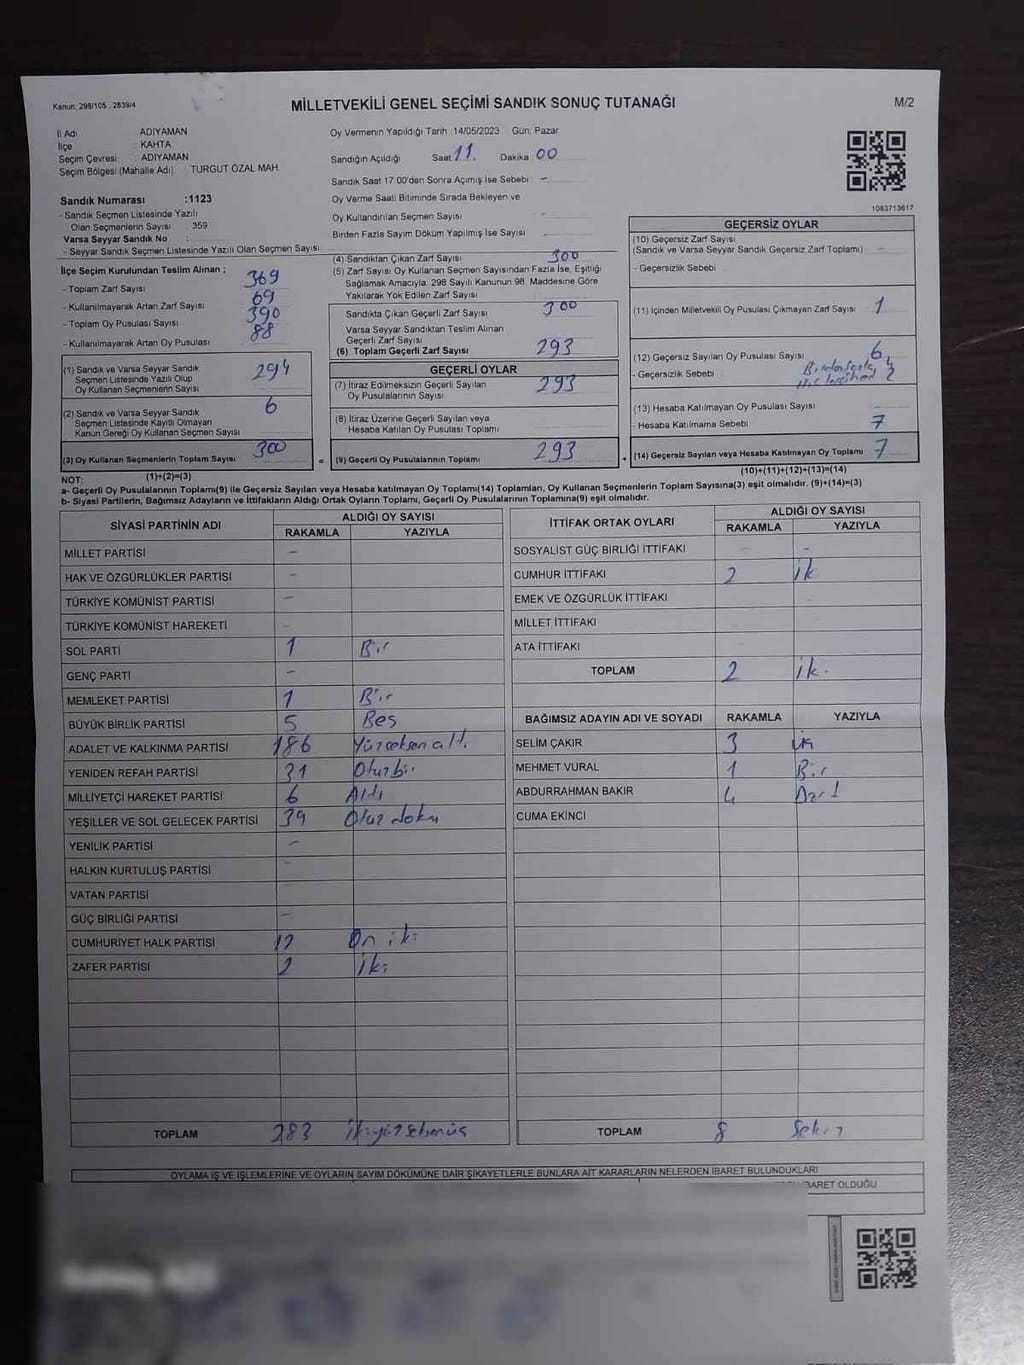 Kanun: 298/105 , 2839/4
MİLLETVEKİLİ GENEL SEÇİMİ SANDIK SONUÇ TUTANAĞI
M/2
İl Adı ADIYAMAN
İlçe KAHTA
Seçim Çevresi : ADIYAMAN
Seçim Bölgesi (Mahalle Adı) : TURGUT ÖZAL MAH.
Oy Vermenin Yapıldığı Tarih : 14/05/2023 Gün: Pazar
Sandığın Açıldığı Saat 17. Dakika 00
Sandık Saat 17:00'den Sonra Açımış İse Sebebi : -
Oy Verme Saati Bitiminde Sırada Bekleyen ve
Oy Kullandırılan Seçmen Sayısı
Birden Fazla Sayım Döküm Yapılmış İse Sayısı
Sandık Numarası :1123
- Sandık Seçmen Listesinde Yazılı
Olan Seçmenlerin Sayısı : 359
Varsa Seyyar Sandık No :
- Seyyar Sandık Seçmen Listesinde Yazılı Olan Seçmen Sayısı :
1083713617
İlçe Seçim Kurulundan Teslim Alınan ;
- Toplam Zarf Sayısı 369
- Kullanılmayarak Artan Zarf Sayısı 69
- Toplam Oy Pusulası Sayısı 390
- Kullanılmayarak Artan Oy Pusulası 88
(1) Sandık ve Varsa Seyyar Sandık
Seçmen Listesinde Yazılı Olup
Oy Kullanan Seçmenlerin Sayısı 294
(2) Sandık ve Varsa Seyyar Sandık
Seçmen Listesinde Kayıtlı Olmayan
Kanun Gereği Oy Kullanan Seçmen Sayısı 6
(3) Oy Kullanan Seçmenlerin Toplam Sayısı 300
(1)+(2)=(3)
(4) Sandıktan Çıkan Zarf Sayısı 300
(5) Zarf Sayısı Oy Kullanan Seçmen Sayısından Fazla İse, Eşitliği
Sağlamak Amacıyla; 298 Sayılı Kanunun 98. Maddesine Göre
Yakılarak Yok Edilen Zarf Sayısı
Sandıkta Çıkan Geçerli Zarf Sayısı 300
Varsa Seyyar Sandıktan Teslim Alınan
Geçerli Zarf Sayısı
(6) Toplam Geçerli Zarf Sayısı 293
GEÇERLİ OYLAR
(7) İtiraz Edilmeksizin Geçerli Sayılan
Oy Pusulalarının Sayısı 293
(8) İtiraz Üzerine Geçerli Sayılan veya
Hesaba Katılan Oy Pusulası Toplamı
= (9) Geçerli Oy Pusulalarının Toplamı 293
GEÇERSİZ OYLAR
(10) Geçersiz Zarf Sayısı
(Sandık ve Varsa Seyyar Sandık Geçersiz Zarf Toplamı)
- Geçersizlik Sebebi :
(11) İçinden Milletvekili Oy Pusulası Çıkmayan Zarf Sayısı 1
(12) Geçersiz Sayılan Oy Pusulası Sayısı 6
- Geçersizlik Sebebi Birden fazla 4
2
(13) Hesaba Katılmayan Oy Pusulası Sayısı
- Hesaba Katılmama Sebebi 7
+ (14) Geçersiz Sayılan veya Hesaba Katılmayan Oy Toplamı 7
(10)+(11)+(12)+(13)=(14)
NOT:
a- Geçerli Oy Pusulalarının Toplamı(9) ile Geçersiz Sayılan veya Hesaba katılmayan Oy Toplamı(14) Toplamları, Oy Kullanan Seçmenlerin Toplam Sayısına(3) eşit olmalıdır. (9)+(14)=(3)
b- Siyasi Partilerin, Bağımsız Adayların ve İttifakların Aldığı Ortak Oyların Toplamı, Geçerli Oy Pusulalarının Toplamına(9) eşit olmalıdır.
SİYASİ PARTİNİN ADI ALDIĞI OY SAYISI
RAKAMLA YAZIYLA
MİLLET PARTİSİ -
HAK VE ÖZGÜRLÜKLER PARTİSİ -
TÜRKİYE KOMÜNİST PARTİSİ -
TÜRKİYE KOMÜNİST HAREKETİ -
SOL PARTİ 1 Bir
GENÇ PARTİ -
MEMLEKET PARTİSİ 1 Bir
BÜYÜK BİRLİK PARTİSİ 5 Beş
ADALET VE KALKINMA PARTİSİ 186 Yüzseksen alt.
YENİDEN REFAH PARTİSİ 31 Otuzbir
MİLLİYETÇİ HAREKET PARTİSİ 6 Altı
YEŞİLLER VE SOL GELECEK PARTİSİ 39 Otuz doku
YENİLİK PARTİSİ -
HALKIN KURTULUŞ PARTİSİ -
VATAN PARTİSİ
GÜÇ BİRLİĞİ PARTİSİ -
CUMHURİYET HALK PARTİSİ 12 On iki
ZAFER PARTİSİ 2 İki
TOPLAM 283 ikiyüzseksenüç
İTTİFAK ORTAK OYLARI ALDIĞI OY SAYISI
RAKAMLA YAZIYLA
SOSYALİST GÜÇ BİRLİĞİ İTTİFAKI - -
CUMHUR İTTİFAKI 2 iki
EMEK VE ÖZGÜRLÜK İTTİFAKI
MİLLET İTTİFAKI
ATA İTTİFAKI
TOPLAM 2 iki
BAĞIMSIZ ADAYIN ADI VE SOYADI RAKAMLA YAZIYLA
SELİM ÇAKIR 3
MEHMET VURAL 1 Bir
ABDURRAHMAN BAKIR 4 Dört
CUMA EKİNCİ
TOPLAM 8 Sekiz
OYLAMA İŞ VE İŞLEMLERİNE VE OYLARIN SAYIM DÖKÜMÜNE DAİR ŞİKAYETLERLE BUNLARA AİT KARARLARIN NELERDEN İBARET BULUNDUKLARI
BARET OLDUĞU